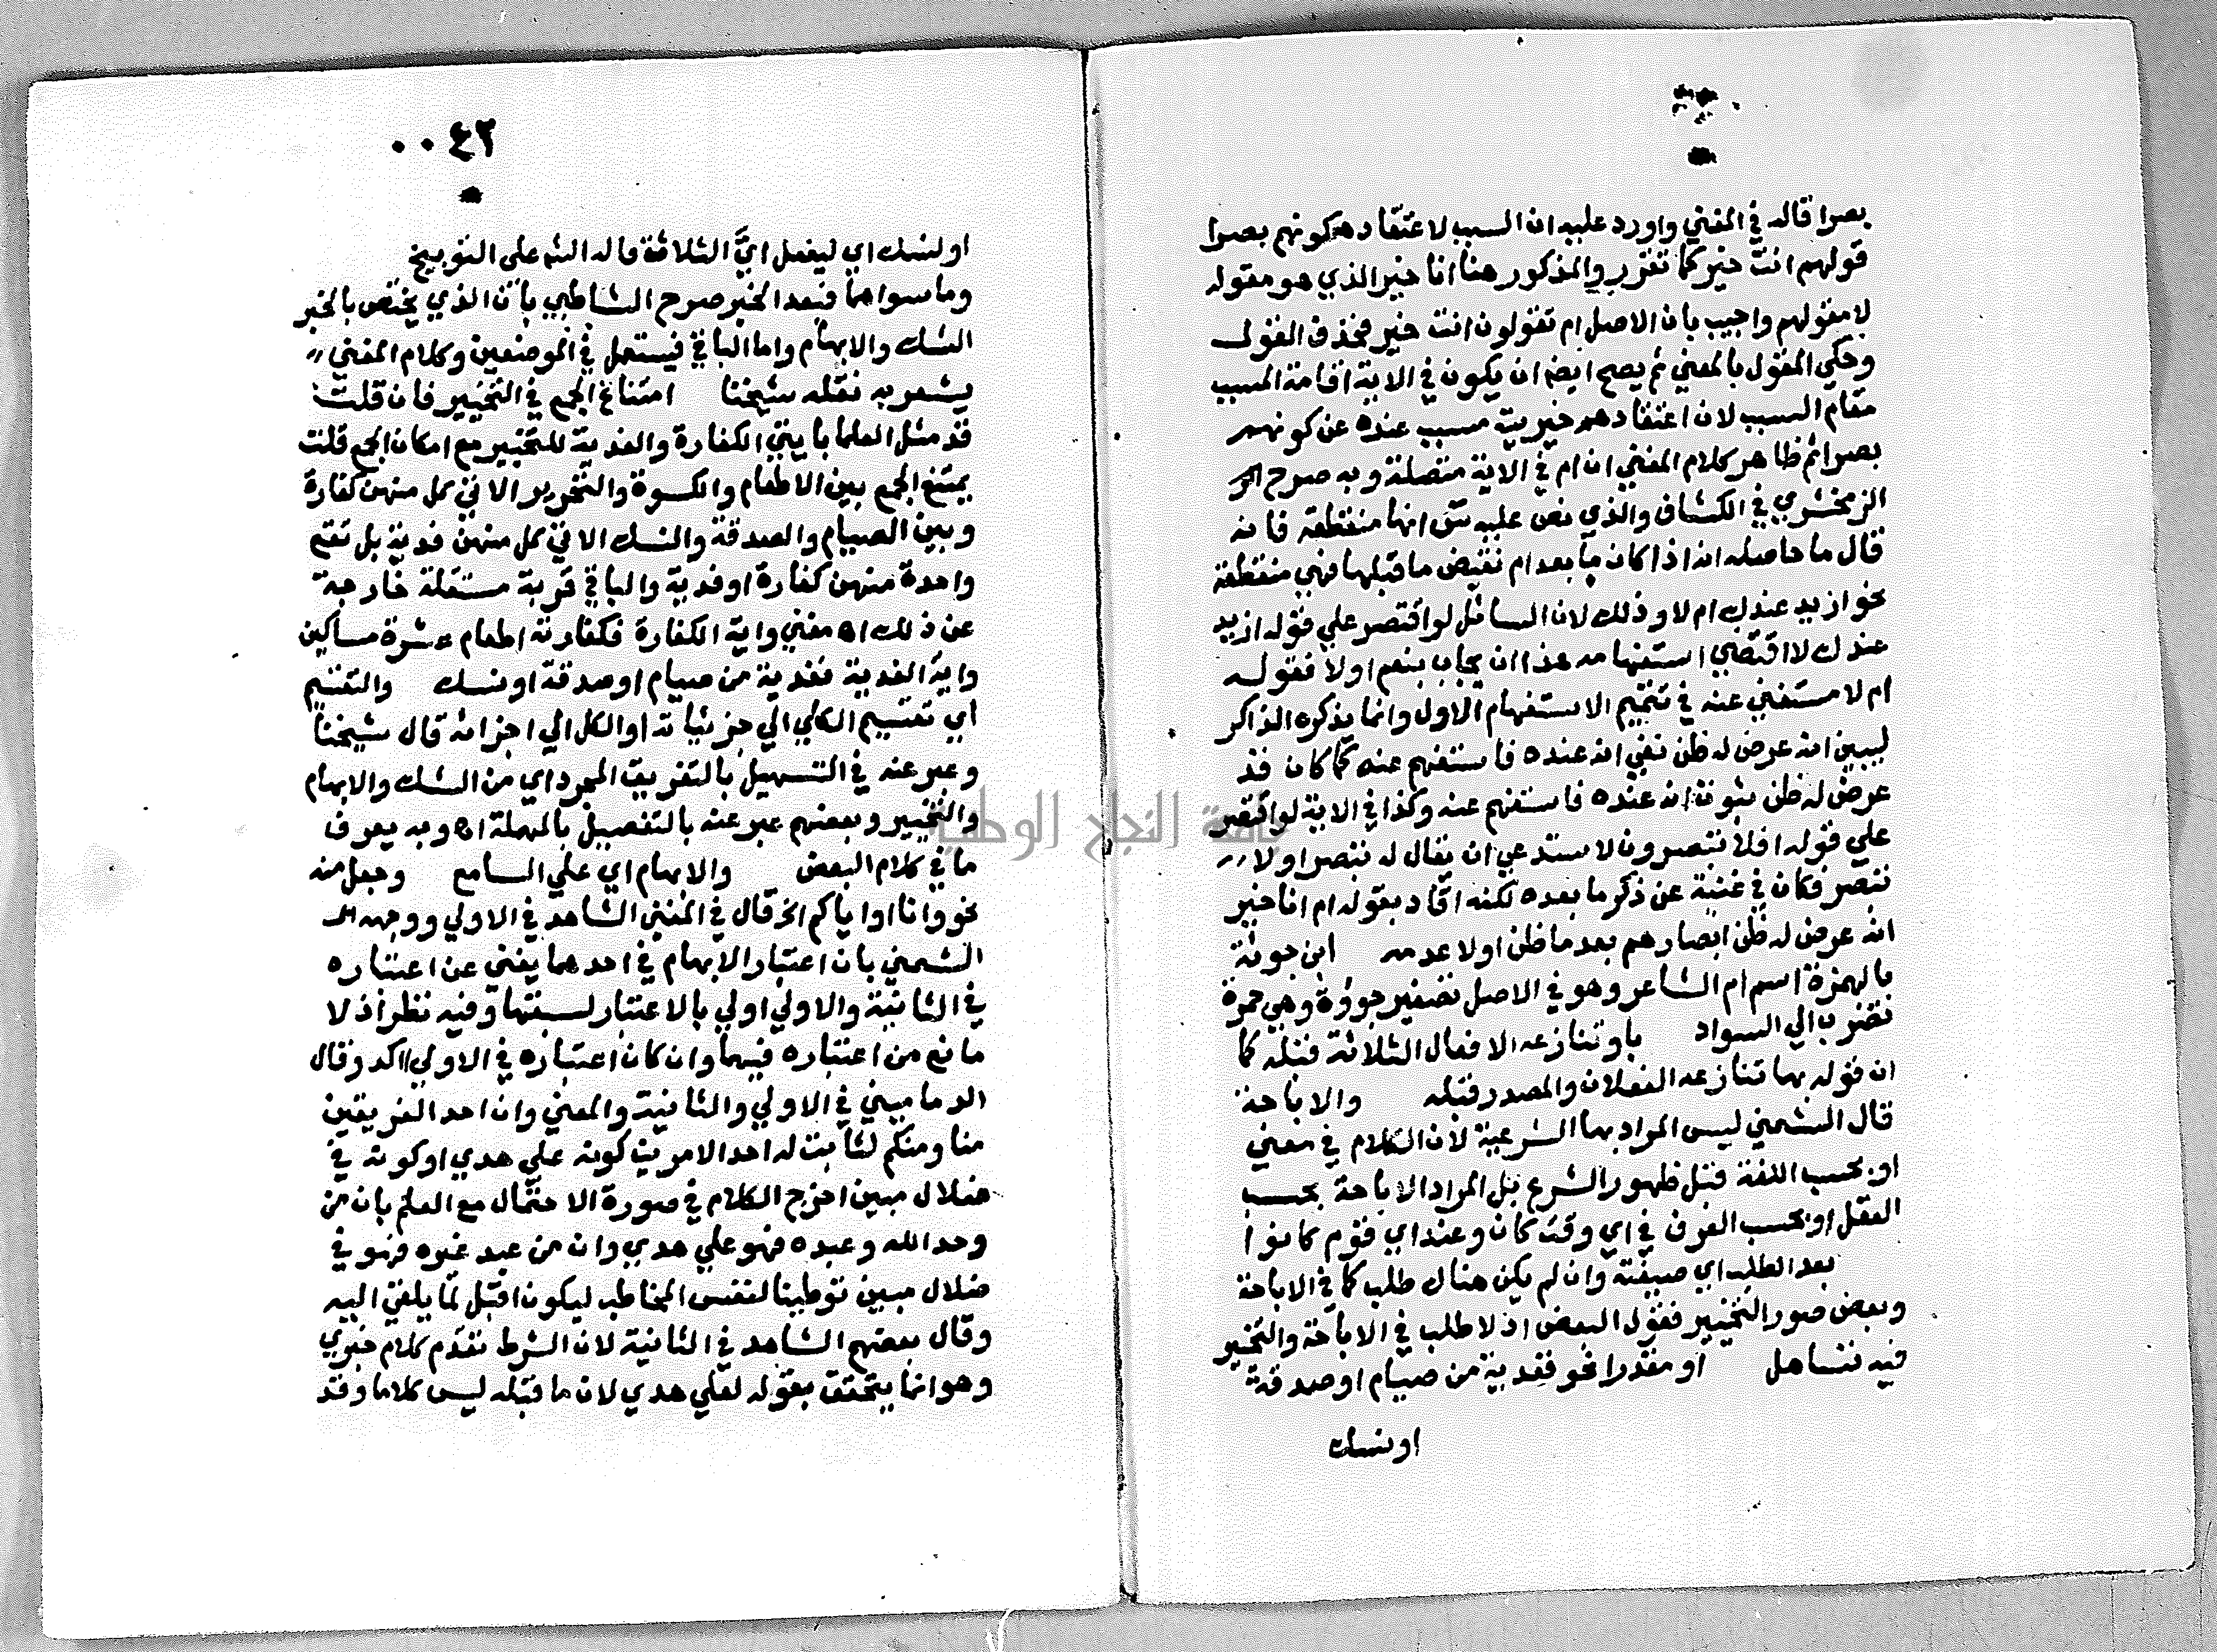 بصرا قاله في المغني واورد عليه ان السبب لاعتقادهم كونهم بصرا
قولهم انت خير كما تقرر والمذكور هنا انا خير الذي هو مقوله
لا مقولهم واجيب بان الاصل ام تقولون انت خير فحذف القول
وحكي المقول بالمعني ثم يصح ايضا ان يكون في الاية اقامة المسبب
مقام السبب لان اعتقادهم خيريته مسبب عنده عن كونهم
بصرا ثم ظاهر كلام المغني ان ام في الاية متصلة وبه صرح
الزمخشري في الكشاف والذي نص عليه س انها منقطعة فانه
قال ما حاصله انه اذا كان ما بعد ام نقيض ما قبلها فهي منقطعة
نحو ازيد عندك ام لا وذلك لان السائل لو اقتصر علي قوله ازيد
عندك لاقتضي استفهامه هذا ان يجاب بنعم او لا فقوله
ام لا مستغني عنه في تتميم الاستفهام الاول وانما يذكره الذاكر
ليبين انه عرض له ظن نفي انه عنده فاستفهم عنه كما كان قد
عرض له ظن ثبوت انه عنده فاستفهم عنه وكذا في الاية لو اقتصر
علي قوله افلا تبصرون لاستدعي ان يقال له نبصر او لا
نبصر فكان في غنية عن ذكر ما بعده لكنه افاد بقوله ام انا خير
انه عرض له ظن ابصارهم بعد ما ظن اولا عدمه ابن جوئة
بالهمزة اسم ام الشاعر وهو في الاصل تصغير جوؤة وهي حمرة
تضرب الي السواد باو تنازعه الافعال الثلاثة قبله كما
ان قوله بها تنازعه الفعلان والمصدر قبله والاباحة
قال الشمني ليس المراد بها الشرعية لان الكلام في معني
او بحسب اللغة قبل ظهور الشرع بل المراد الاباحة بحسب
العقل او بحسب العرف في اي وقت كان وعند اي قوم كانوا
بعد الطلب اي صيغته وان لم يكن هناك طلب كما في الاباحة
وبعض صور التخيير فقول البعض اذ لا طلب في الاباحة والتخيير
فيه تساهل او مقدرا نحو ففدية من صيام او صدقة
او نسك
٠٠٤٢
او نسك اي ليفعل ايَّ الثلاثة قاله الشم علي التوبيخ
وما سواهما فبعد الخبر صرح الشاطبي بان الذي يختص بالخبر
الشك والابهام واما الباقي فيستعمل في الموضعين وكلام المغني
يشعر به نقله شيخنا امتناع الجمع في التخيير فان قلت
قد مثل العلما بايتي الكفارة والفدية للتخيير مع امكان الجمع قلت
يمتنع الجمع بين الاطعام والكسوة والتحرير الاتي كل منهن كفارة
وبين الصيام والصدقة والنسك الاتي كل منهن فدية بل تقع
واحدة منهن كفارة او فدية والباقي قربة مستقلة خارجة
عن ذلك اه مغني واية الكفارة فكفارته اطعام عشرة مساكين
واية الفدية ففدية من صيام او صدقة او نسك والتقسيم
اي تقسيم الكلي الي جزئياته او الكل الي اجزائه قال شيخنا
وعبر عنه في التسهيل بالتفريق المجرد اي من الشك والابهام
والتخيير وبعضهم عبر عنه بالتفصيل بالمهملة اه وبه يعرف
ما في كلام البعض والابهام اي علي السامع وجعل منه
نحو وانا او اياكم الخ قال في المغني الشاهد في الاولي ووجهه
الشمني بان اعتبار الابهام في احدهما يغني عن اعتباره
في الثانية والاولي اولي بالاعتبار لسبقها وفيه نظر اذ لا
مانع من اعتباره فيهما وان كان اعتباره في الاولي اكد وقال
الدماميني في الاولي والثانية والمعني وان احد الفريقين
منا ومنكم لثابت له احد الامرين كونه علي هدي او كونه في
ضلال مبين اخرج الكلام في صورة الاحتمال مع العلم بان من
وحد الله وعبده فهو علي هدي وان من عبد غيره فهو في
ضلال مبين توطينا لنفس المخاطب ليكون اقبل لما يلقي اليه
وقال بعضهم الشاهد في الثانية لان الشرط تقدم كلام خبري
وهو انما يتحقق بقوله لعلي هدي لان ما قبله ليس كلاما وقد
جامعة النجاح الوطنية